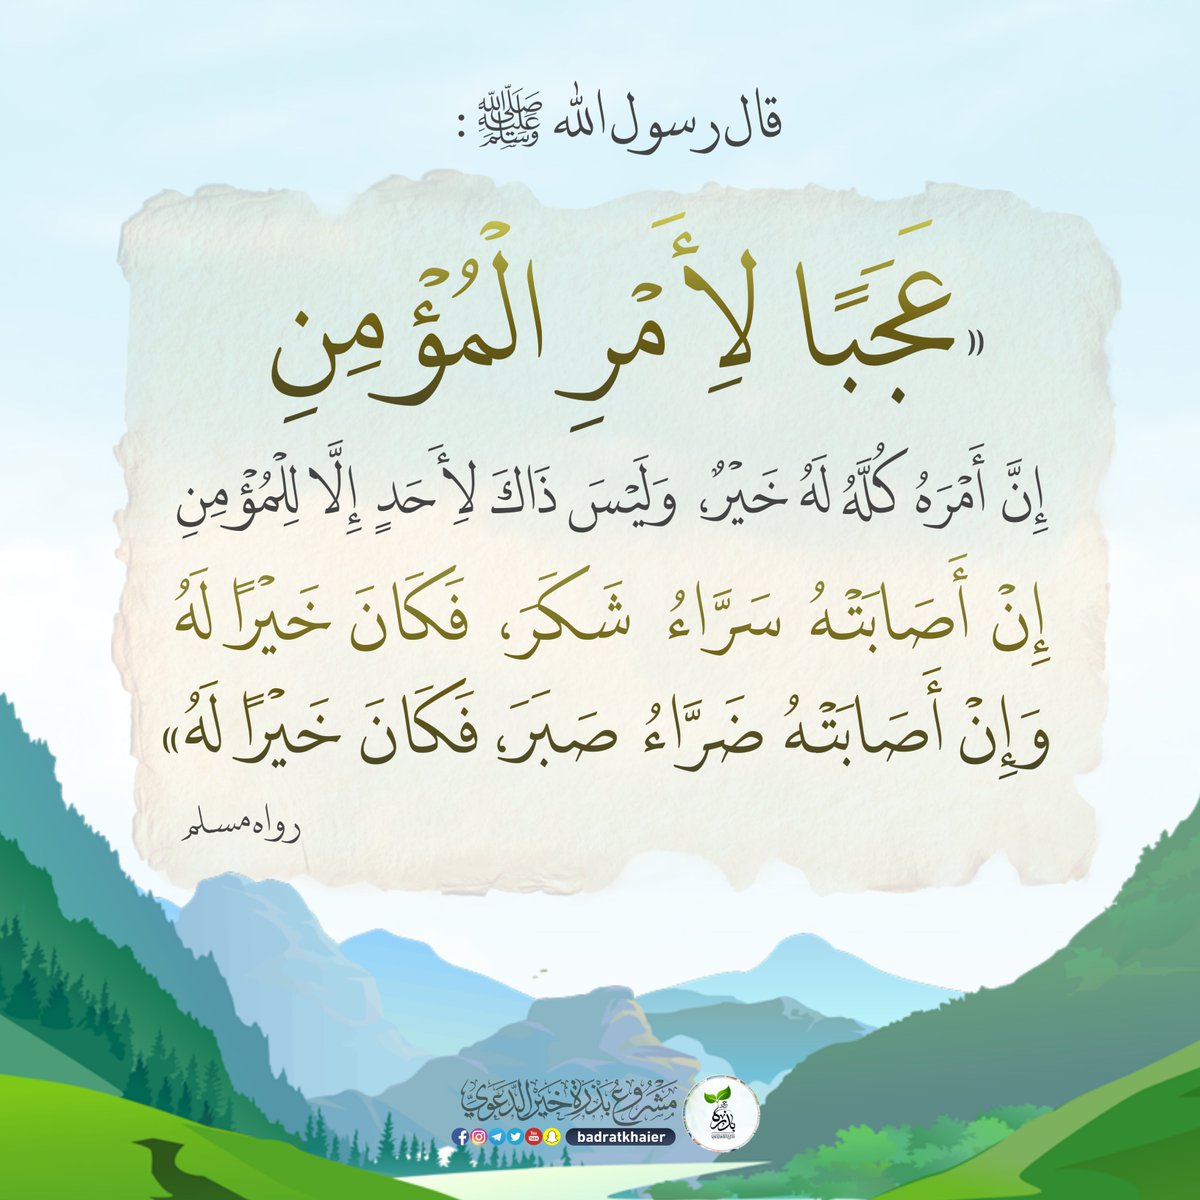 قال رسول الله ﷺ :
«عَجَبًا لِأَمْرِ الْمُؤْمِنِ
إِنَّ أَمْرَهُ كُلَّهُ لَهُ خَيْرٌ، وَلَيْسَ ذَاكَ لِأَحَدٍ إِلَّا لِلْمُؤْمِنِ
إِنْ أَصَابَتْهُ سَرَّاءُ شَكَرَ، فَكَانَ خَيْرًا لَهُ
وَإِنْ أَصَابَتْهُ ضَرَّاءُ صَبَرَ، فَكَانَ خَيْرًا لَهُ»
رواه مسلم
مَشْرُوعُ بَذْرَةُ خَيْرٍ الدَّعَوِيّ
badratkhaier
بذرة